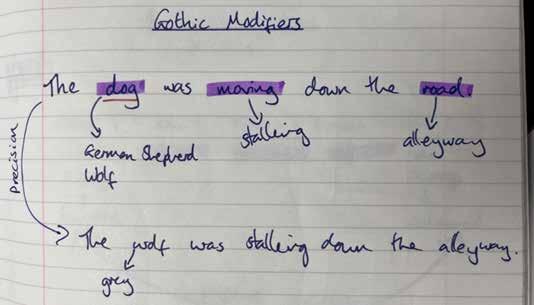 Gothic Modifiers
The dog was moving down the road.
German Shepherd
Wolf
stalking
alleyway
Precision
The wolf was stalking down the alleyway.
grey